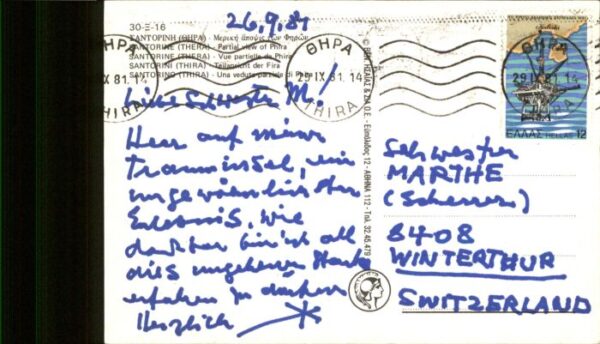 26.9.81
30-Ξ-16
ΣΑΝΤΟΡΙΝΗ (ΘΗΡΑ) - Μερική άποψις των Φηρών
SANTORINE (THERA) - Partial view of Phira
SANTORINE (THIRA) - Vue partielle de Phira
SANTORINI (THIRA) - Teilansicht der Fira
SANTORINI (THIRA) - Una veduta parziale di
ΘΗΡΑ
IX 81. 14
THIRA
ΘΗΡΑ
29 IX 81. 14
THIRA
ΕΛΛΑΣ HELLAS 12
Liebe Schwester M!
Hier auf meiner
Trauminsel, ein
ungewöhnlicher
Erlebnis. Wie
dankbar bin ich all
dies ungeheuer
erfahren zu dürfen
Herzlich
Schwester
MARTHE
(Scherrer)
8408
WINTERTHUR
SWITZERLAND